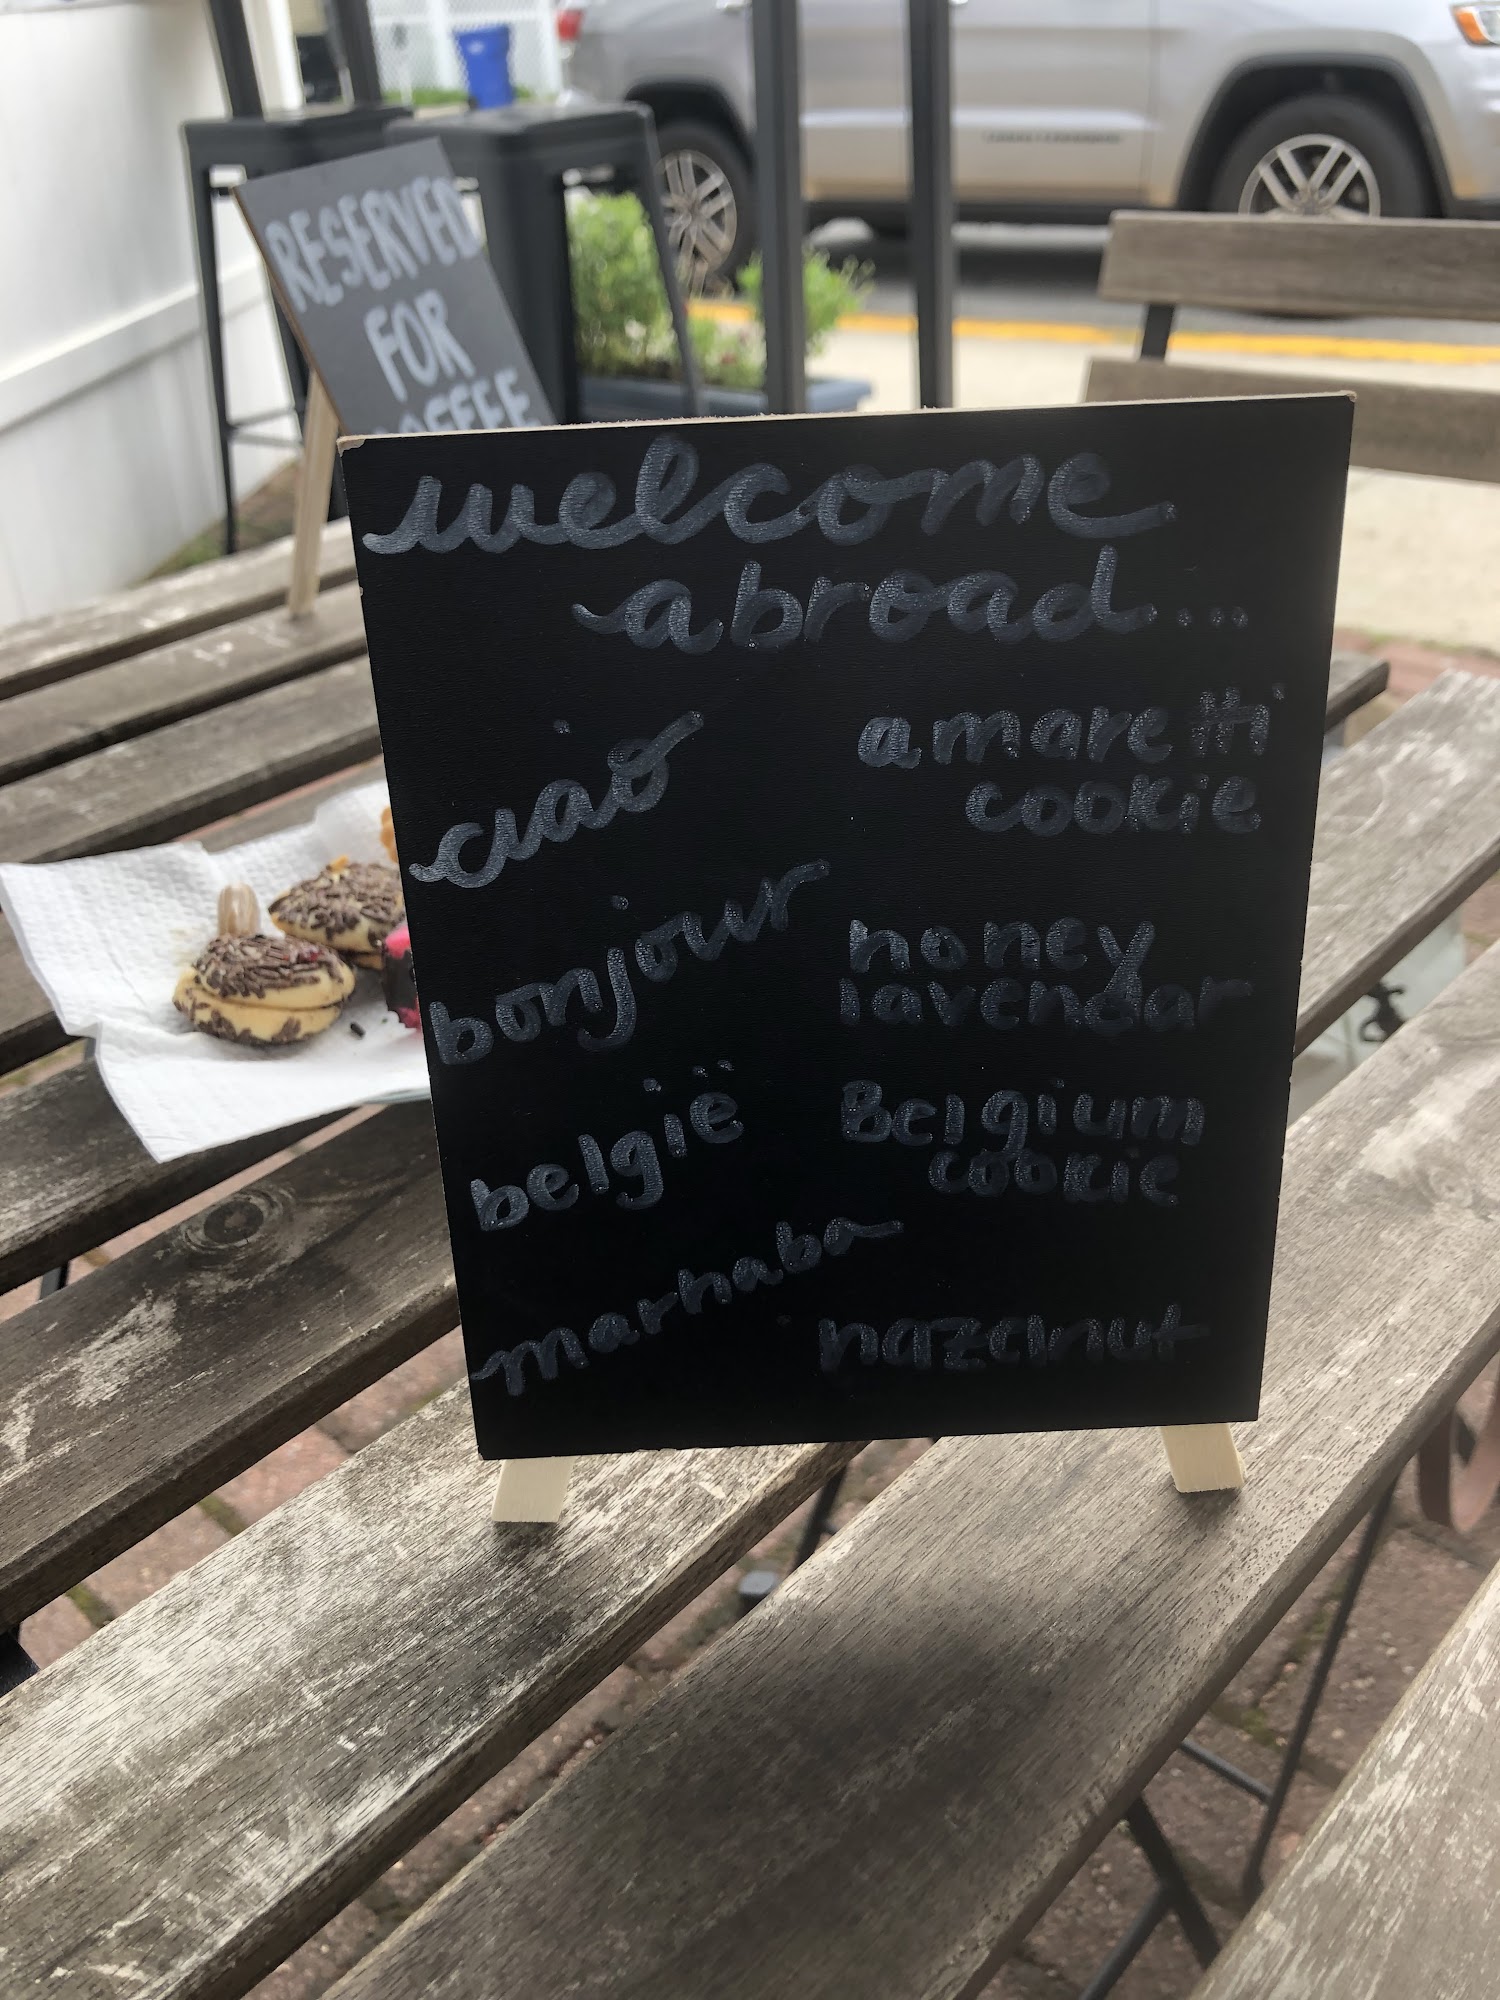 RESERVED
FOR
COFFEE
welcome
abroad...
ciao
amaretti
cookie
bonjour
honey
lavendar
belgië
Belgium
cookie
marhaba
hazelnut